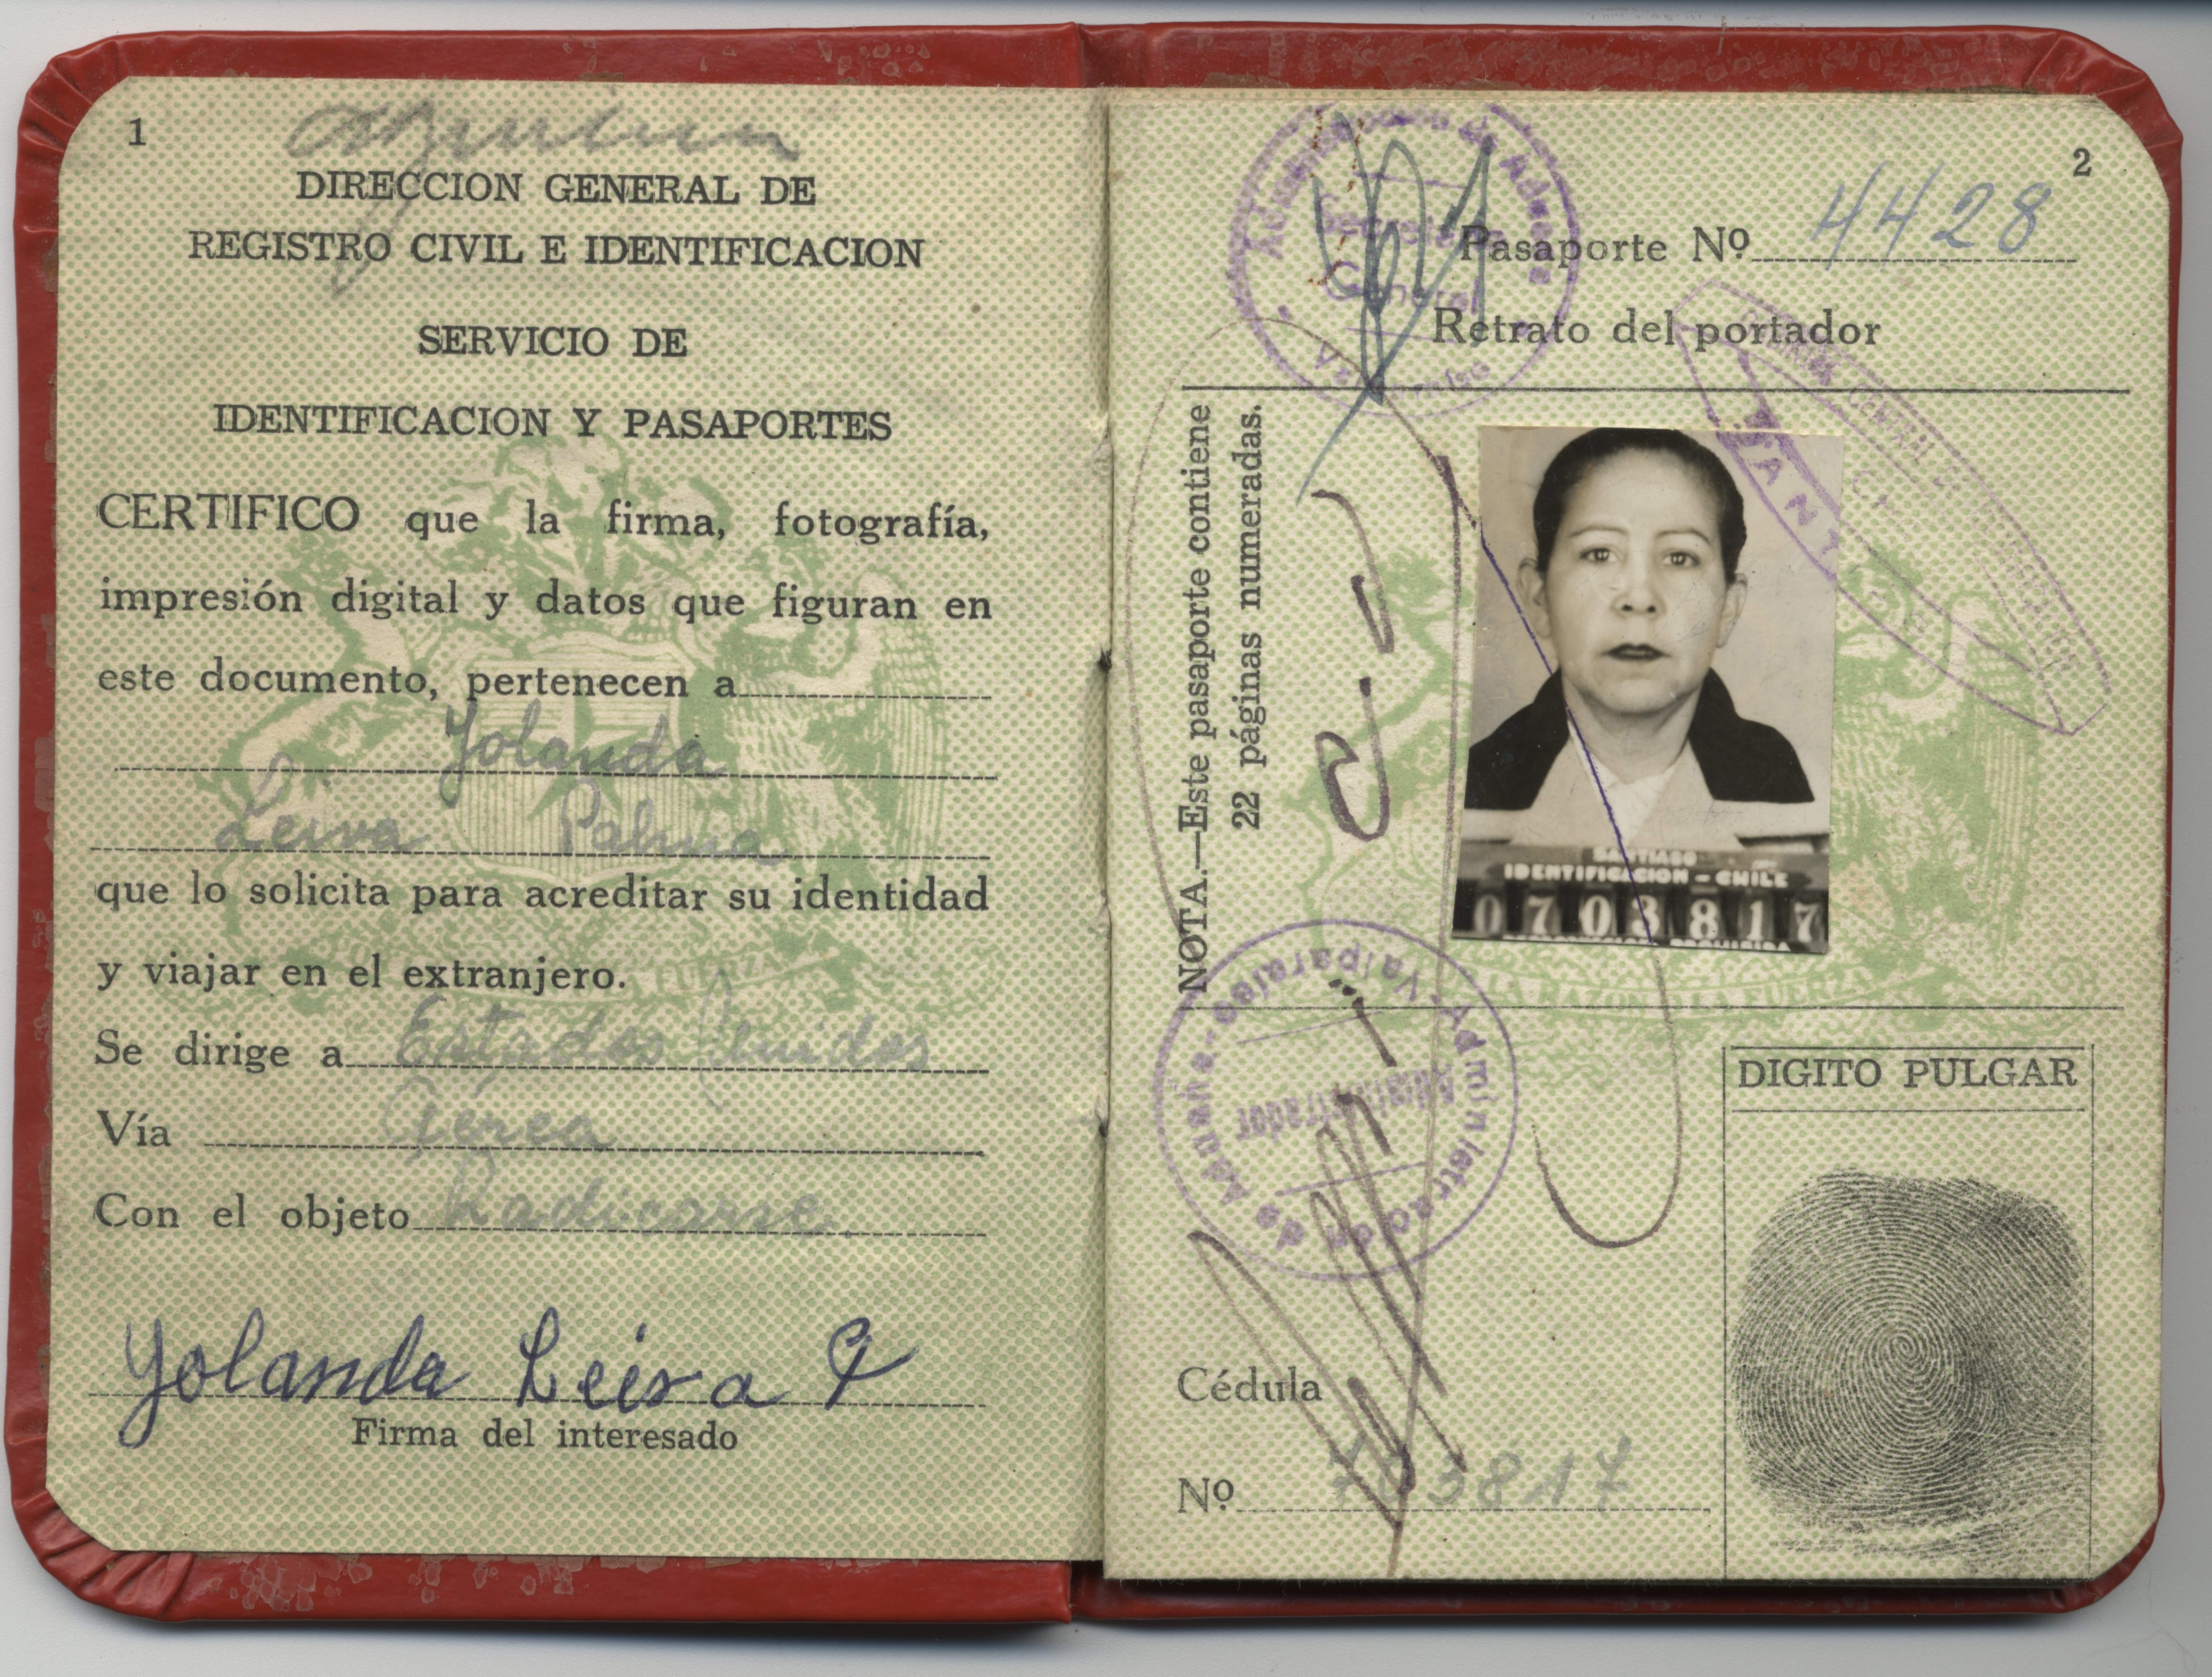 1
DIRECCION GENERAL DE
REGISTRO CIVIL E IDENTIFICACION
SERVICIO DE
IDENTIFICACION Y PASAPORTES
CERTIFICO que la firma, fotografía,
impresión digital y datos que figuran en
este documento, pertenecen a
Yolanda
Leiva Palma
que lo solicita para acreditar su identidad
y viajar en el extranjero.
Se dirige a Estados Unidos
Vía Aérea
Con el objeto Radicarse
Yolanda Leiva P
Firma del interesado
2
Pasaporte Nº 4428
Retrato del portador
Secretaria
General
Valparaiso
NOTA.—Este pasaporte contiene
22 páginas numeradas.
SANTIAGO
IDENTIFICACION - CHILE
0703817
PROHIBIDA
Administrador de Aduana - Valparaiso -
Administrador
DIGITO PULGAR
Cédula
Nº 703817